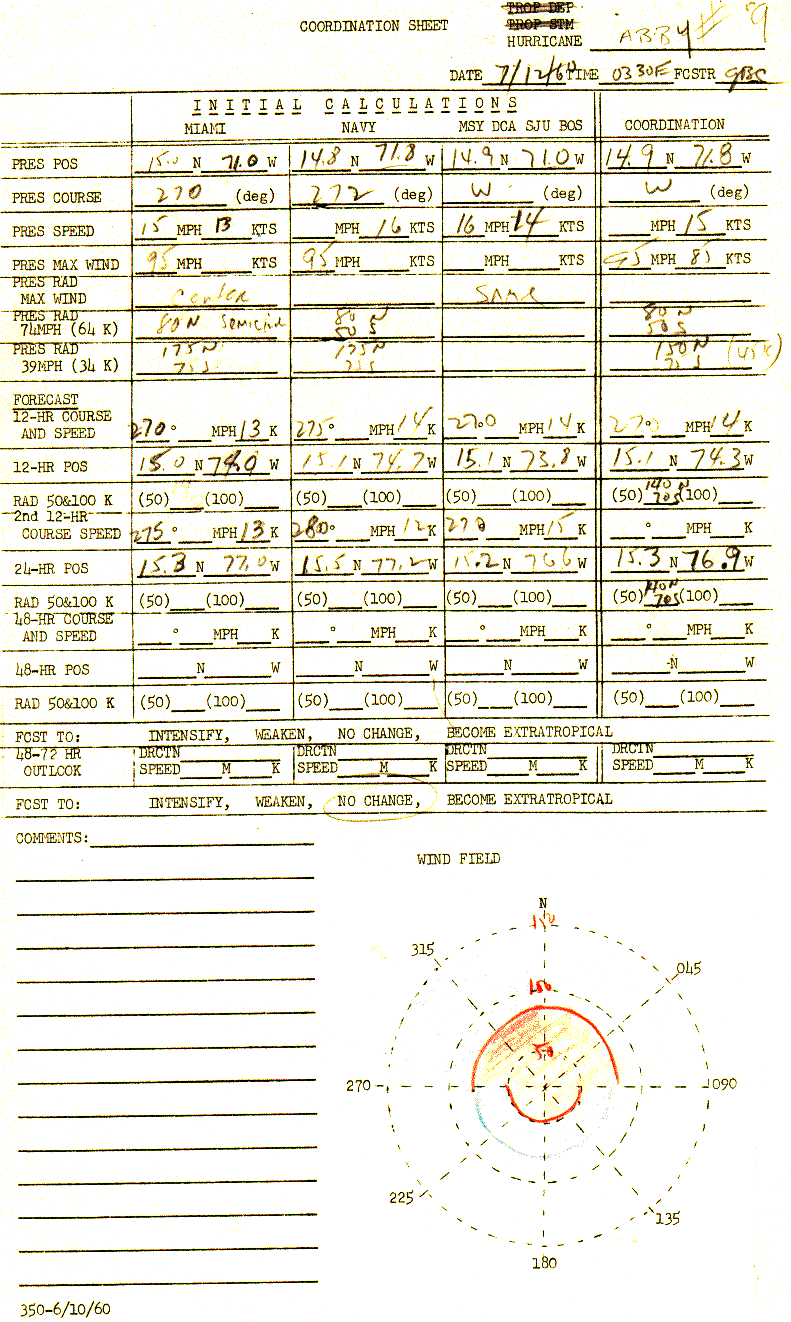 COORDINATION SHEET
TROP DEP
TROP STM
HURRICANE ABBY # 9
DATE 7/12/60 TIME 0330E FCSTR
INITIAL CALCULATIONS
MIAMI NAVY MSY DCA SJU BOS COORDINATION
PRES POS 15.0 N 71.0 W 14.8 N 71.8 W 14.9 N 71.0 W 14.9 N 71.8 W
PRES COURSE 270 (deg) 272 (deg) W (deg) W (deg)
PRES SPEED 15 MPH 13 KTS MPH 16 KTS 16 MPH 14 KTS MPH 15 KTS
PRES MAX WIND 95 MPH KTS 95 MPH KTS MPH KTS 95 MPH 85 KTS
PRES RAD
MAX WIND Center SAME
PRES RAD 80 N 80 N
74MPH (64 K) 80N SEMICIR 50 S 50 S
PRES RAD 175 N 175 N 150 N
39MPH (34 K) 75 S 75 S 75 S (45K)
FORECAST
12-HR COURSE
AND SPEED 270 ° MPH 13 K 275 ° MPH 14 K 270 MPH 14 K 270 MPH 14 K
12-HR POS 15.0 N 74.0 W 15.1 N 74.7 W 15.1 N 73.8 W 15.1 N 74.3 W
RAD 50&100 K (50) (100) (50) (100) (50) (100) (50) 140 N 70S (100)
2nd 12-HR
COURSE SPEED 275 ° MPH 13 K 280 ° MPH 12 K 270 MPH 15 K ° MPH K
24-HR POS 15.3 N 77.0 W 15.5 N 77.2 W 15.2 N 76.6 W 15.3 N 76.9 W
RAD 50&100 K (50) (100) (50) (100) (50) (100) (50) 140N 70S (100)
48-HR COURSE
AND SPEED ° MPH K ° MPH K ° MPH K ° MPH K
48-HR POS N W N W N W N W
RAD 50&100 K (50) (100) (50) (100) (50) (100) (50) (100)
FCST TO: INTENSIFY, WEAKEN, NO CHANGE, BECOME EXTRATROPICAL
48-72 HR DRCTN DRCTN DRCTN DRCTN
OUTLOOK SPEED M K SPEED M K SPEED M K SPEED M K
FCST TO: INTENSIFY, WEAKEN, NO CHANGE, BECOME EXTRATROPICAL
COMMENTS:
WIND FIELD
N
315
045
150
50
270
090
225
135
180
350-6/10/60